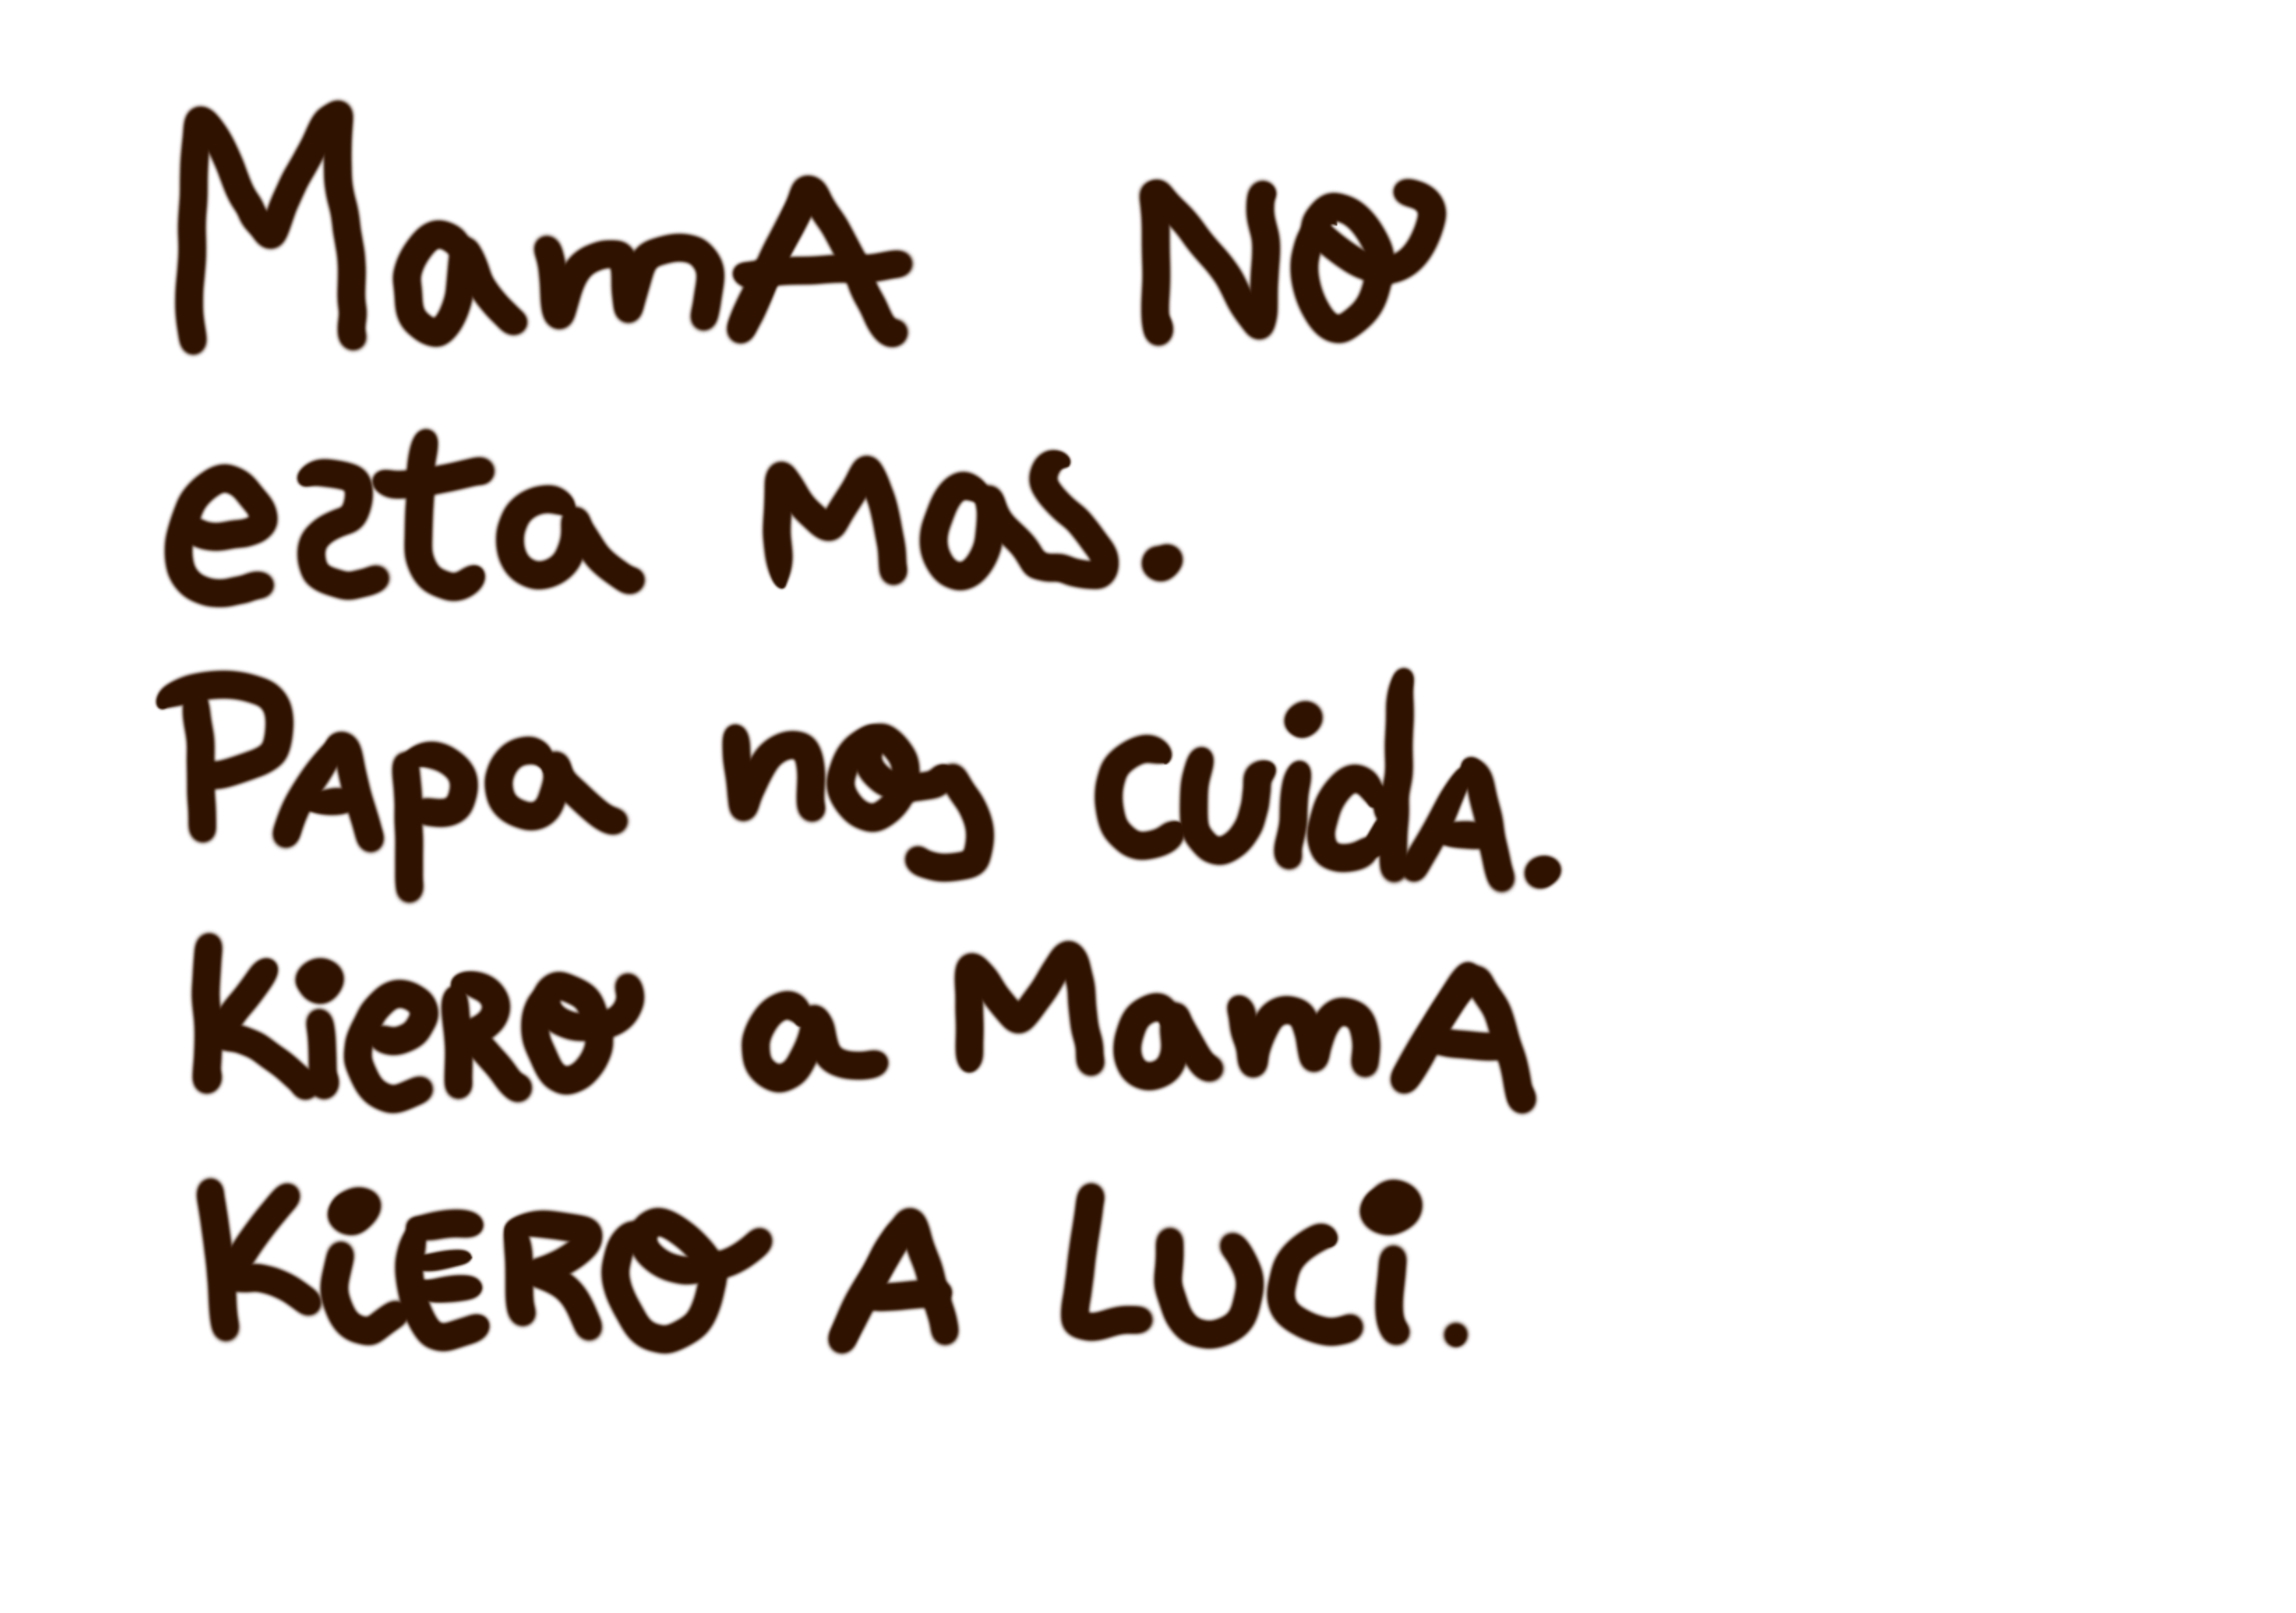 MamA NO
esta mas.
PApa nos cuidA.
KieRo a MamA
KiERO A LUCi.